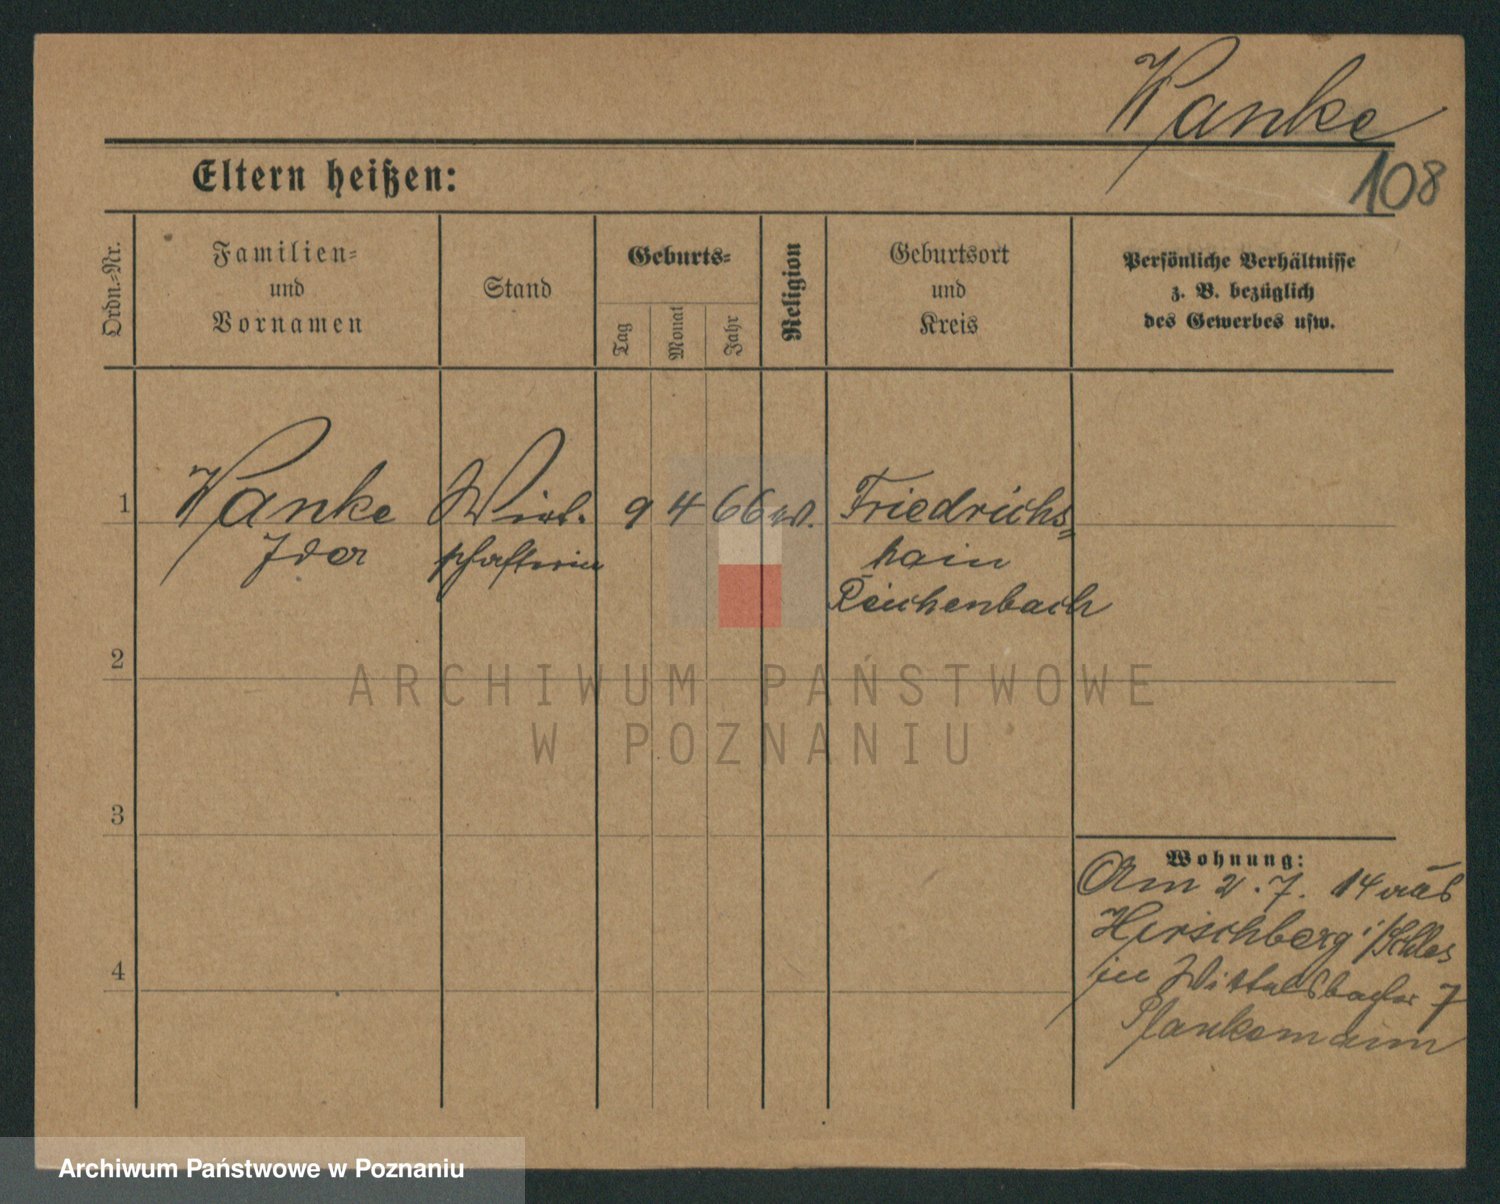 Wanke
108
Eltern heißen:
Ordn.-Nr.
Familien-
und
Vornamen
Stand
Geburts-
Tag
Monat
Jahr
Religion
Geburtsort
und
Kreis
Persönliche Verhältnisse
z. B. bezüglich
des Gewerbes usw.
1 Wanke Wirt- 9 4 66 Friedrichs=
Ida schafterin hain
Reichenbach
2
3
4
Wohnung:
Am 2. 7. 14 aus
Hirschberg i/Schles
in Wittelsbacher 7
ARCHIWUM PAŃSTWOWE
W POZNANIU
Archiwum Państwowe w Poznaniu